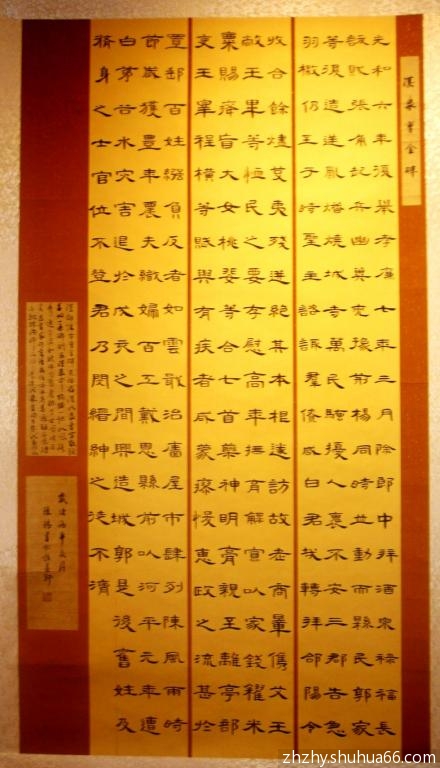 漢曹全碑
光和六年復舉孝廉七年三月除郎中拜酒泉祿福長
訞賊張角起兵幽冀兗豫荊楊同時並動而縣民郭家
等復造逆亂燔燒城寺萬民騷擾人裹不安三郡告急
羽檄仍至于時聖主諮諏群僚咸曰君哉轉拜郃陽令
收合餘燼芟夷殘迸絕其本根遂訪故老商量儁艾王
敞王畢等恤民之要存慰高年撫育鰥寡以家錢糴米
粟賜癃盲大女桃婓等合七首藥神明膏親至離亭部
吏王宰程橫等賦與有疾者咸蒙瘳悛惠政之流甚於
置郵百姓繦負反者如雲戢治廧屋市肆列陳風雨時
節歲獲豐年農夫織婦百工戴恩縣前以河平元年遭
白茅谷水災害退於戊亥之間興造城郭是後舊姓及
脩身之士官位不登君乃閔縉紳之徒不濟
zhzhy.shuhua66.com